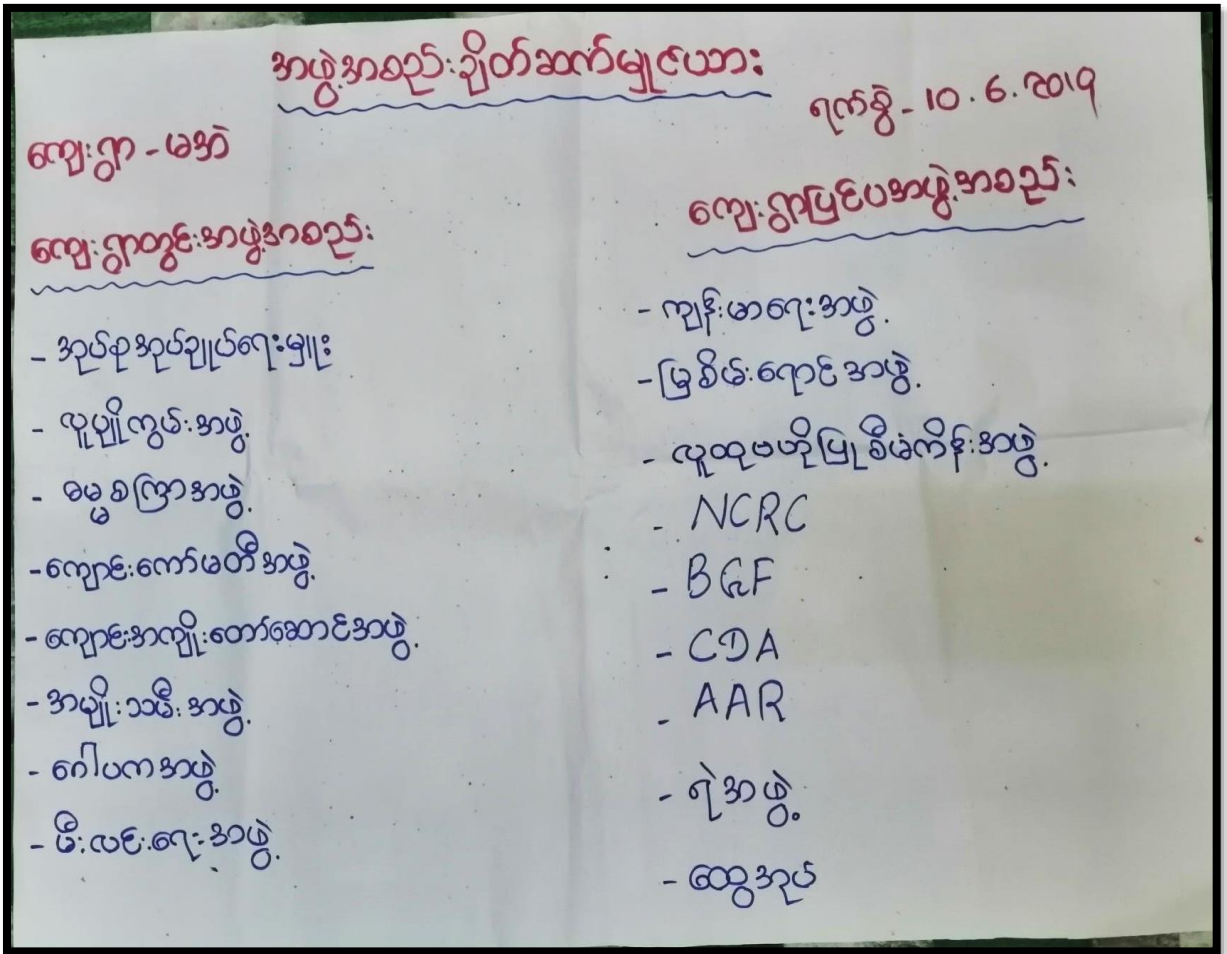 အဖွဲ့အစည်းချိတ်ဆက်မှုဇယား
ရက်စွဲ - 10.6.2019
ကျေးရွာ - မအဲ
ကျေးရွာတွင်းအဖွဲ့အစည်း
- အုပ်စုအုပ်ချုပ်ရေးမှူး
- လူပျိုကွမ်းအဖွဲ့
- ဓမ္မစကြာအဖွဲ့
- ကျောင်းကော်မတီအဖွဲ့
- ကျောင်းအကျိုးတော်ဆောင်အဖွဲ့
- အမျိုးသမီးအဖွဲ့
- ဂေါပကအဖွဲ့
- မီးလင်းရေးအဖွဲ့
ကျေးရွာပြင်ပအဖွဲ့အစည်း
- ကျန်းမာရေးအဖွဲ့
- မြစိမ်းရောင်အဖွဲ့
- လူထုဗဟိုပြုစီမံကိန်းအဖွဲ့
- NCRC
- BGF
- CDA
- AAR
- ရဲအဖွဲ့
- ထွေအုပ်